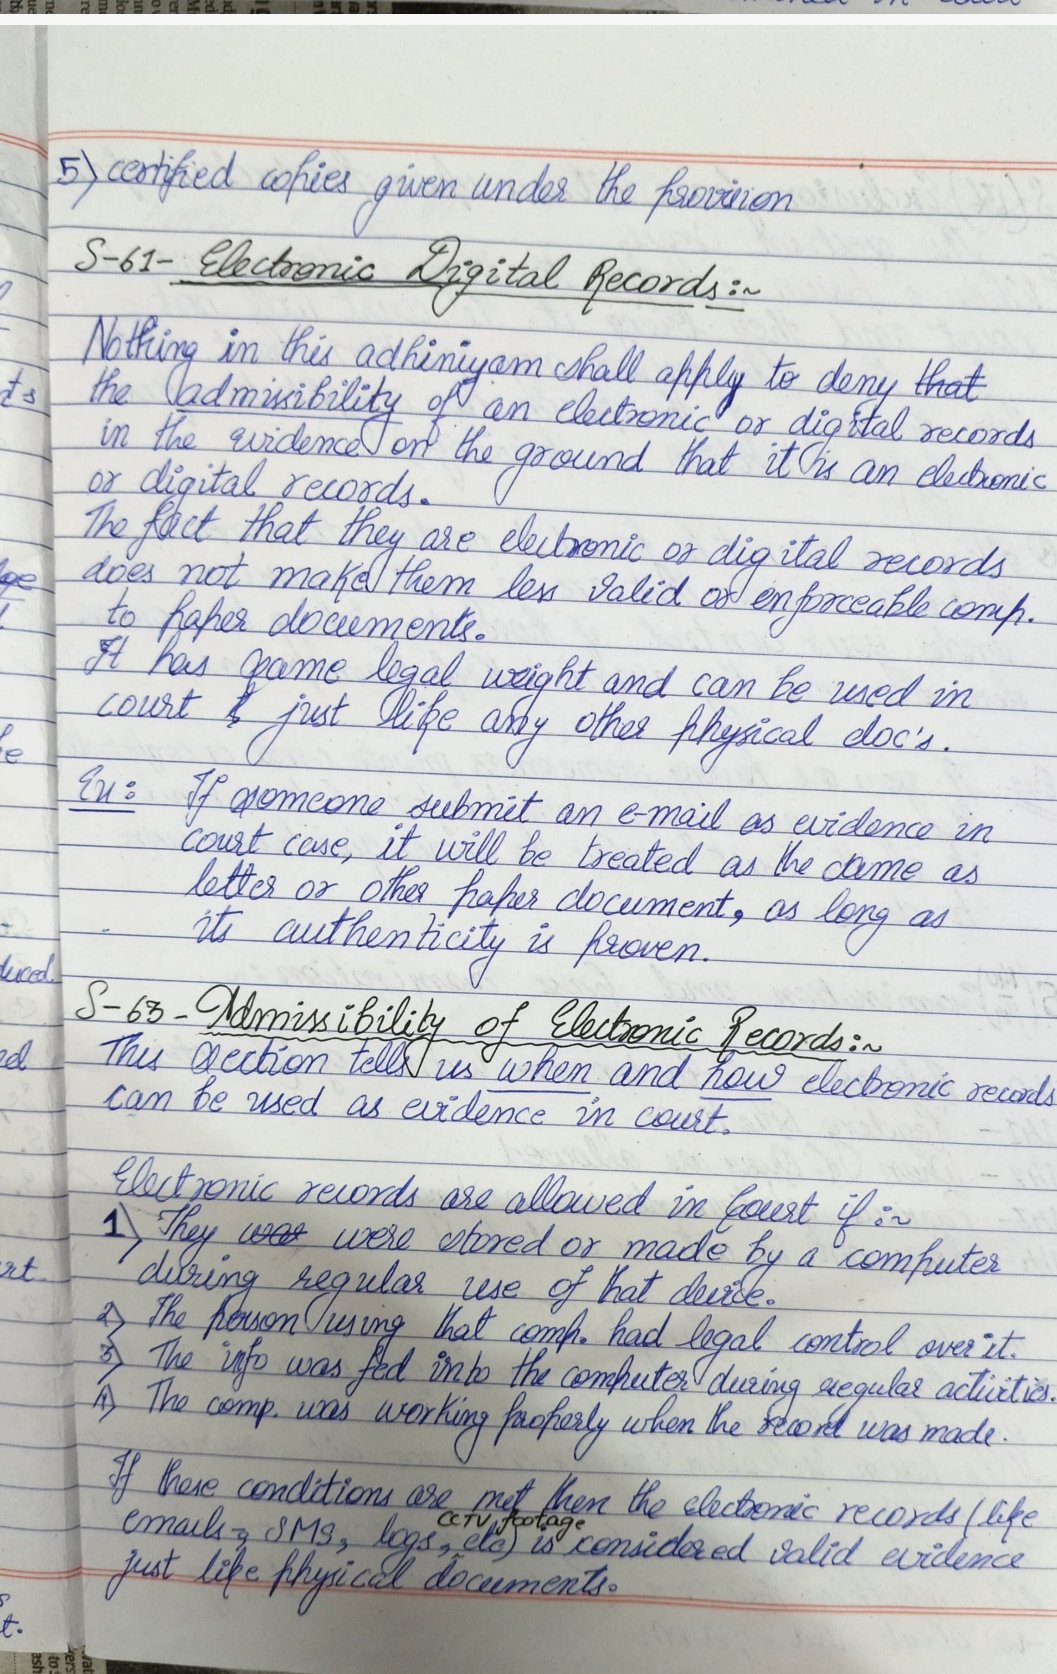 5) certified copies given under the provision
S-61- Electronic Digital Records:~
Nothing in this adhiniyam shall apply to deny that
the admissibility of an electronic or digital records
in the evidence on the ground that it is an electronic
or digital records.
The fact that they are electronic or digital records
does not make them less valid or enforceable comp.
to paper documents.
It has same legal weight and can be used in
court & just like any other physical doc's.
Ex: If someone submit an e-mail as evidence in
court case, it will be treated as the same as
letter or other paper document, as long as
its authenticity is proven.
S-63- Admissibility of Electronic Records:~
This section tells us when and how electronic records
can be used as evidence in court.
Electronic records are allowed in Court if:~
1) They was were stored or made by a computer
during regular use of that device.
2) The person using that comp. had legal control over it.
3) The info was fed into the computer during regular activities.
4) The comp. was working properly when the record was made.
If these conditions are met then the electronic records (like
CCTV footage
emails, SMS, logs, etc) is considered valid evidence
just like physical documents.